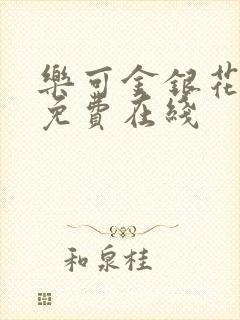 樂可金銀花
免費在綫
和泉桂